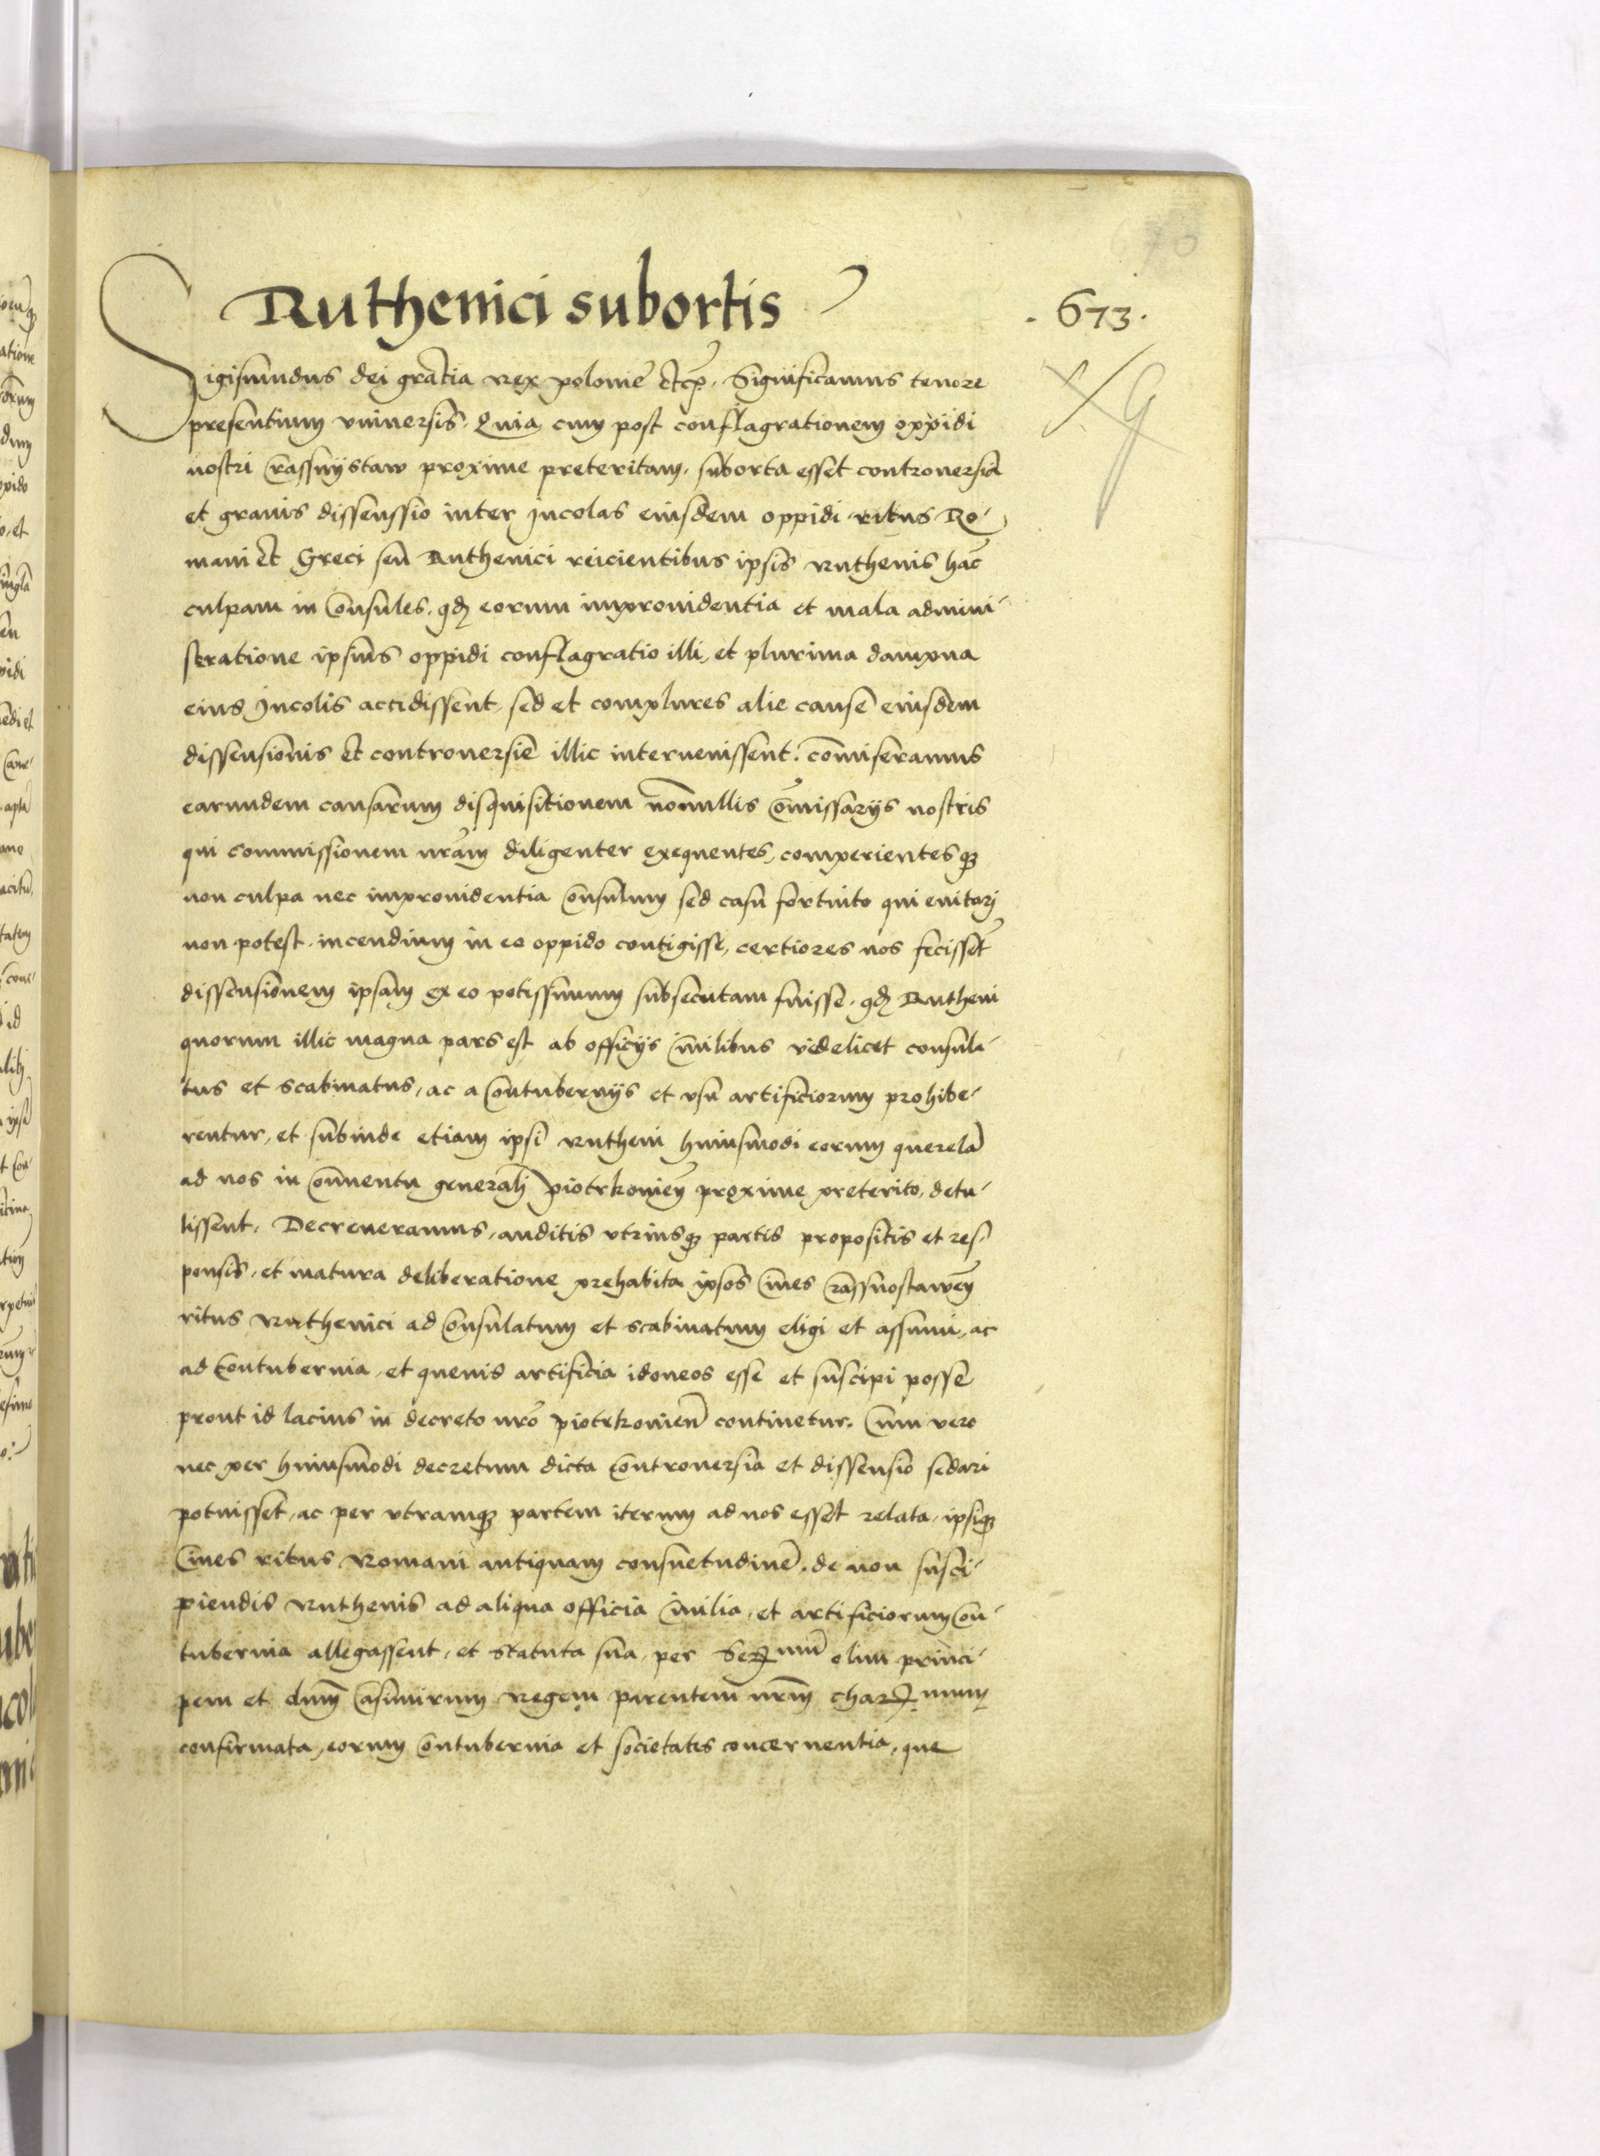 Ruthenici subortis
. 673 .
Sigismundus dei gratia rex polonie etc̃. Significamus tenore
presentium vniuersis. Quia cum post conflagrationem oppidi
nostri Crassnijstaw proxime preteritam, suborta esset controuersia
et grauis dissenssio inter Jncolas eiusdem oppidi ritus Ro-
mani et Greci seu Ruthenici reicientibus ipsis ruthenis hãc
culpam in Consules, qđ eorum improuidentia et mala admini-
stratione ipsius oppidi conflagratio illi, et plurima dampna
eius Jncolis accidissent, sed et complures alie cause eiusdem
dissensionis et controuersie illic interuenissent. cõmiseramus
earundem causarum disquisitionem nõnullis Cõmissarijs nostris
qui commissionem nrãm diligenter exequentes, comperientesq3
non culpa nec improuidentia Consulum sed casu fortuito qui euitari
non potest, incendium in eo oppido contigisse, certiores nos fecissẽt
dissensionem ipsam ex eo potissimum subsecutam fuisse, qđ Rutheni
quorum illic magna pars est ab officijs Ciuilibus videlicet consula-
tus et scabinatus, ac a Contubernijs et vsu artificiorum prohibe-
rentur, et subinde etiam ipsi rutheni huiusmodi eorum querelã
ad nos in Conuentu generali piotrkowieñ proxime preterito, detu-
lissent. Decreueramus, auditis vtriusq3 partis propositis et res-
ponsis, et matura deliberatione prehabita ipsos Ciues Crassnostawieñ
ritus ruthenici ad Consulatum et scabinatum eligi et assumi, ac
ad Contubernia, et queuis artificia idoneos esse et suscipi posse
prout id lacius in decreto nrõ piotrkowieñ continetur. Cum vero
nec per huiusmodi decretum dicta Controuersia et dissensio sedari
potuisset, ac per vtramq3 partem iterum ad nos esset relata, ipsiq3
Ciues ritus Romani antiquam consuetudinẽ, de non susci-
piendis ruthenis ad aliqua officia Ciuilia, et artificiorum Con-
tubernia allegassent, et statuta sua, per Ser-mũ olim princi-
pem et dñm Casimirum Regem parentem nrm̃ char-mum
confirmata, eorum Contubernia et societates concernentia, que